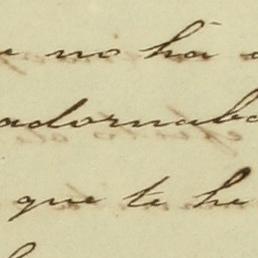 no há
adornaba
que te he